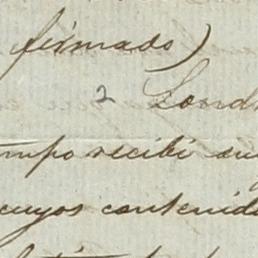 firmado)
2 Lond
mpo recibí su
cuyos contenid